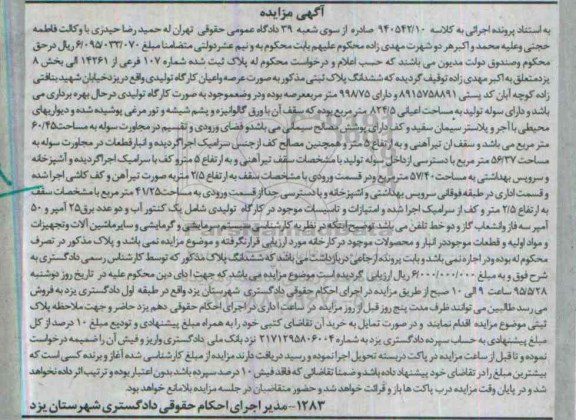 آگهی مزایده
به استناد پرونده اجرائی به کلاسه ۹۴۰۵۴۲/۱۰ صادره از سوی شعبه ۳۹ دادگاه عمومی حقوقی تهران له حمید رضا حیدری با وکالت فاطمه
حجتی وعلیه محمد و اکبر هر دو شهرت مهدی زاده محکوم علیهم بابت محکوم به و نیم عشر دولتی متضامنا مبلغ ۶/۰۹۵/۰۳۳/۰۷۰ ریال در حق
محکوم وصندوق دولت مدیون می باشند که حسب اعلام و درخواست محکوم له پلاک ثبت شده شماره ۱۰۷ فرعی از ۱۴۲۶۱ الی بخش ۸
یزد متعلق به اکبر مهدی زاده توقیف گردیده که ششدانگ پلاک ثبتی مذکور به صورت عرصه واعیان کارگاه تولیدی واقع در یزد خیابان شهید بنافتی
زاده کوچه آبان کد پستی ۸۹۱۵۷۵۸۸۹۱ و دارای ۹۹۸۷۵ متر مربع عرصه بوده و در وضع موجود به صورت کارگاه تولیدی در حال بهره برداری می
باشد و دارای سوله تولید به مساحت اعیانی ۸۲۴/۵ متر مربع بوده که سقف آن با ورق گالوانیزه و پشم شیشه و تور مرغی پوشیده شده و دیوارهای
محیطی با آجر و پلاستر سیمان سفید و کف دارای پوشش مصالح سیمانی می باشد و فضای ورودی و تقسیم در مجاورت سوله به مساحت ۶۰/۴۵
متر مربع می باشد و سقف ان تیرآهنی و به ارتفاع ۵ متر و همچنین مصالح کف از جنس سرامیک اجرا گردیده و انبار قطعات در مجاورت سوله به
مساحت ۵۶/۳۷ متر مربع با دسترسی از داخل سوله تولید با مشخصات سقف تیرآهنی و به ارتفاع ۵ مترو کف با سرامیک اجرا گردیده و آشپزخانه
و سرویس بهداشتی به مساحت ۵۷/۴۰ متر مربع و در قسمت ورودی با مشخصات سقف به ارتفاع ۲/۵ متر به صورت تیرآهن و کف کاشی اجرا شده
و قسمت اداری در طبقه فوقانی سرویس بهداشتی و اشپزخانه و با دسترسی جدا از قسمت ورودی به مساحت ۴۱/۲۵ متر مربع با مشخصات سقف
به ارتفاع ۲/۵ متر و کف از سرامیک اجرا شده و امتیازات و تاسیسات موجود در کارگاه تولیدی شامل یک کنتور آب و دو عدد برق ۲۵ آمپر و ۵۰
آمپر سه فاز وانشعاب گاز و دو خط تلفن می باشد توضیح اینکه در نظر به کارشناسی سیستم سرمایشی و گرمایشی و سایر ماشین آلات وتجهیزات
و مواد اولیه و قطعات موجود در انبار و محصولات موجود در کارخانه مورد ارزیابی قرار نگرفته و موضوع مزایده نمی باشد و پلاک مذکور در تصرف
محکوم له بوده و در اجاره نمی باشد و بابت پرونده ارجاعی در بازداشت می باشد که ششدانگ پلاک مذکور که توسط کارشناس رسمی دادگستری به
شرح فوق و به مبلغ ۶/۰۰۰/۰۰۰/۰۰۰ ریال ارزیابی گردیده است موضوع مزایده می باشد که جهت ادای دین محکوم علیه در تاریخ روز دوشنبه
۹۵/۵/۲۸ ساعت ۹ الی ۱۰ صبح از طریق مزایده در اجرای احکام حقوقی دادگستری شهرستان یزد واقع در طبقه اول دادگستری یزد به فروش
می رسد طالبین می توانند ظرف مدت پنج روز قبل از روز مزایده در ساعت اداری در اجرای احکام حقوقی دهم یزد حاضر و جهت ملاحظه پلاک
ثبتی موضوع مزایده اقدام نمایند و در صورت تمایل به خرید آن تقاضای کتبی خود را به همراه مبلغ پیشنهادی و تودیع مبلغ ۱۰ درصد از کل
مبلغ پیشنهادی به حساب سپرده دادگستری یزد به شماره ۲۱۷۱۲۹۵۸۰۶۰۰۴ نزد بانک ملی دادگستری واریز و فیش آن را ضمیمه درخواست
نموده و تا قبل از ساعت مزایده در پاکت در بسته تحویل اجرا نموده و رسید دریافت دارند مزایده از مبلغ کارشناسی شده آغاز و برنده کسی است که
بیشترین مبلغ را در تقاضای خود پیشنهاد داده باشد و ضمنا تقاضائی که فاقد فیش ۱۰ درصد سپرده باشد بدون اعتبار بوده و ترتیب اثر داده نخواهد
شد و در پایان وقت مزایده درب پاکت ها باز و قرائت خواهد شد و حضور متقاضیان در جلسه مزایده بلامانع خواهد بود.
۱۲۸۳- مدیر اجرای احکام حقوقی دادگستری شهرستان یزد